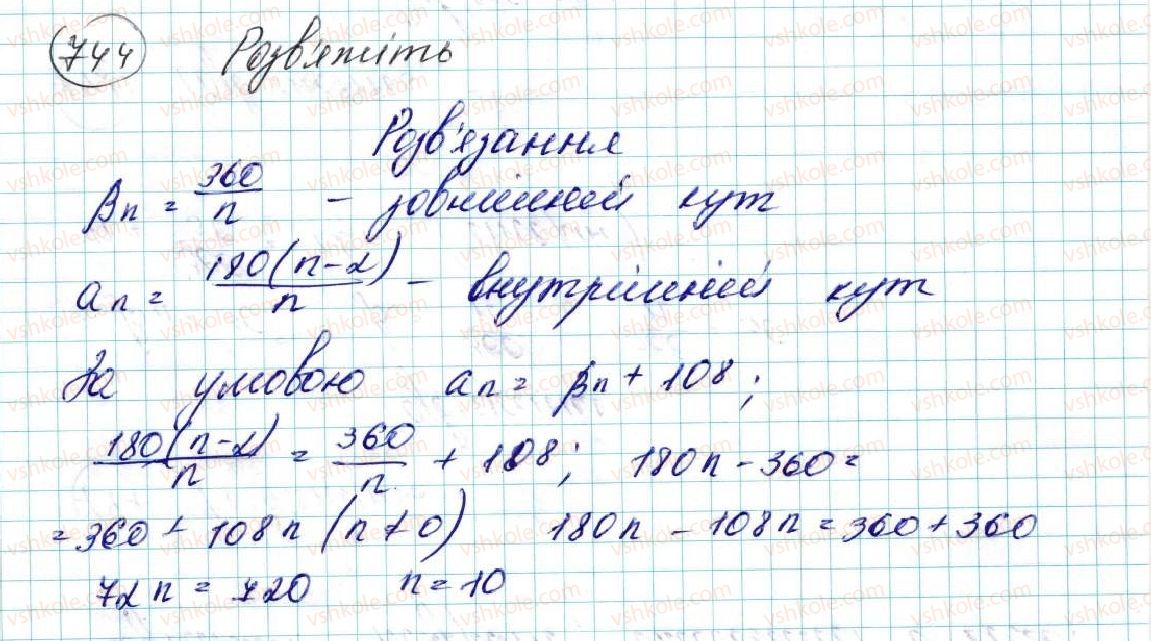 744 Розв'яжіть
Розв'язання
βn = 360/n - зовнішній кут
an = 180(n-2)/n - внутрішній кут
За умовою an = βn + 108;
180(n-2)/n = 360/n + 108; 180n - 360 =
= 360 + 108n (n≠0) 180n - 108n = 360 + 360
72n = 720 n = 10
vshkole.com